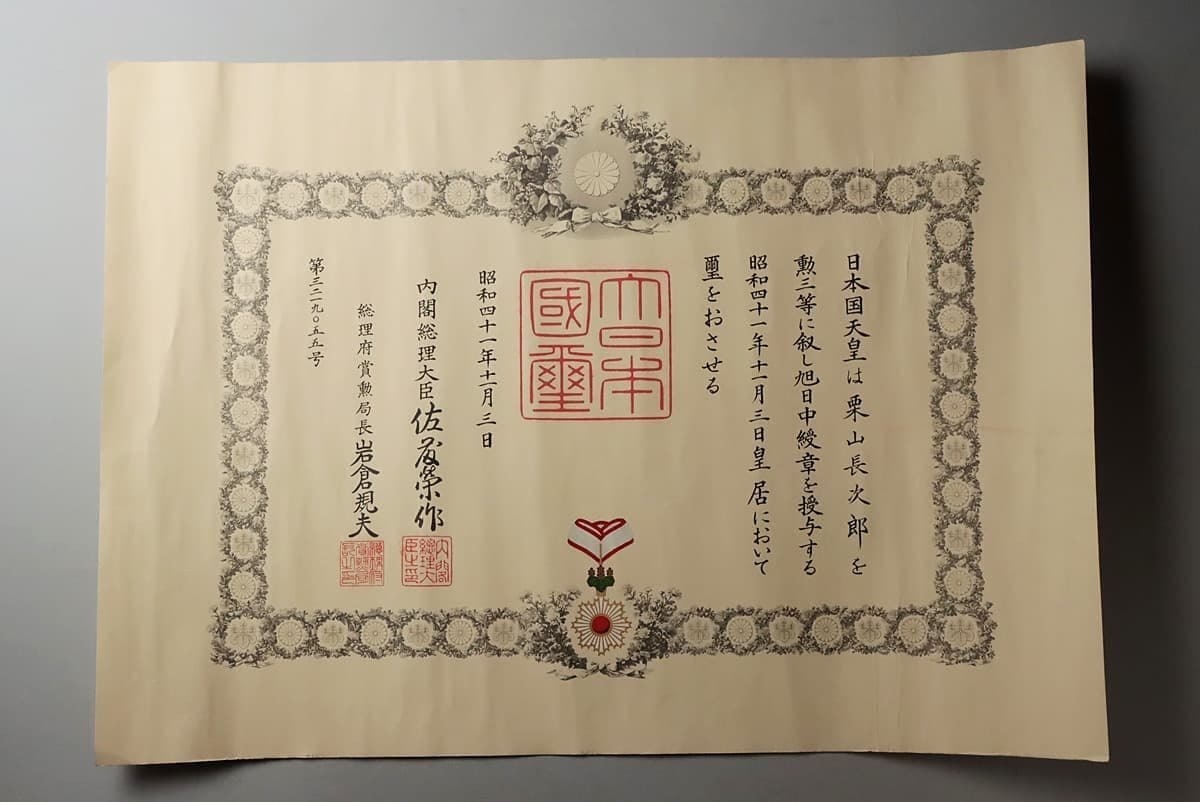 日本国天皇は栗山長次郎を
勲三等に叙し旭日中綬章を授与する
昭和四十一年十一月三日皇居において
璽をおさせる
大日本
國璽
昭和四十一年十一月三日
内閣総理大臣佐藤榮作
内閣総理大臣之印
総理府賞勲局長岩倉規夫
第三二九〇五五号